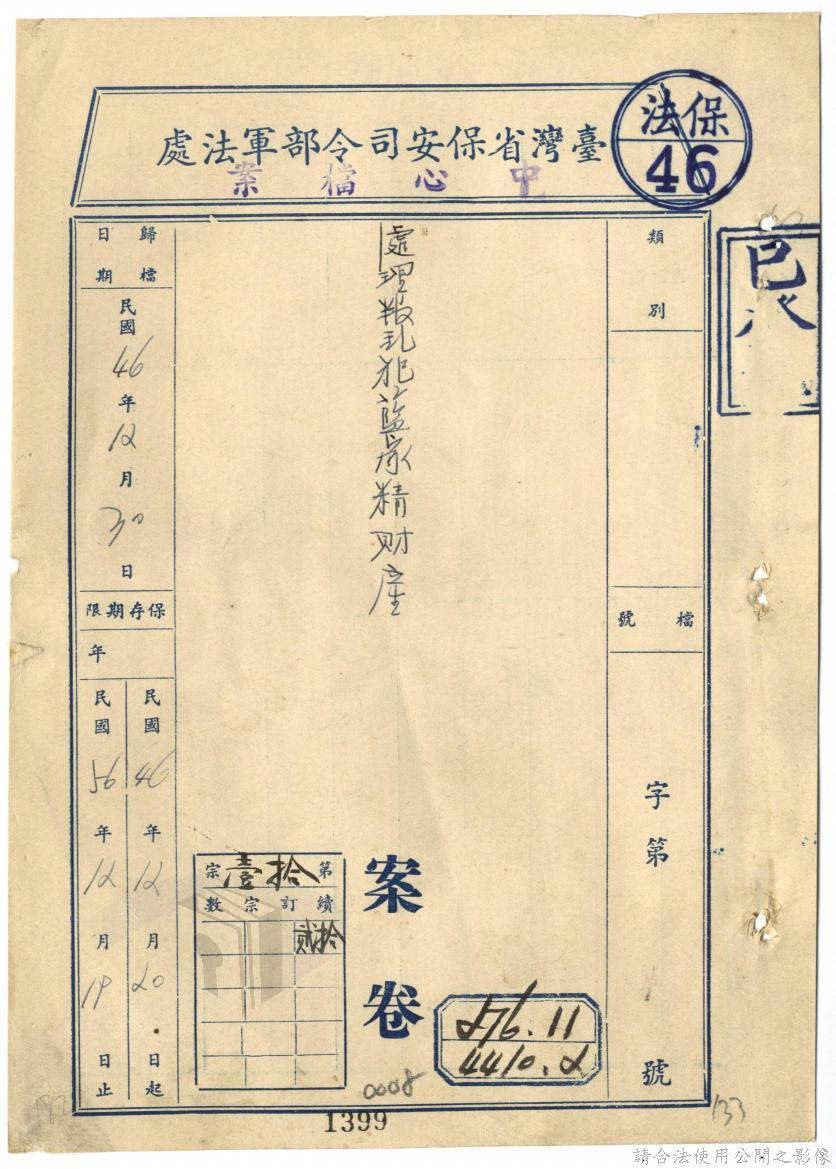 保法
46
臺灣省保安司令部軍法處
中心檔案
類別
檔號
字第
號
處理叛乱犯藍承精財產
案卷
第拾壹宗
續訂宗數
拾貳
276.11
4410.2
0008
歸檔日期
民國46年12月30日
保存期限
年
民國46年12月20日起
民國56年12月19日止
1399
133
請合法使用公開之影像